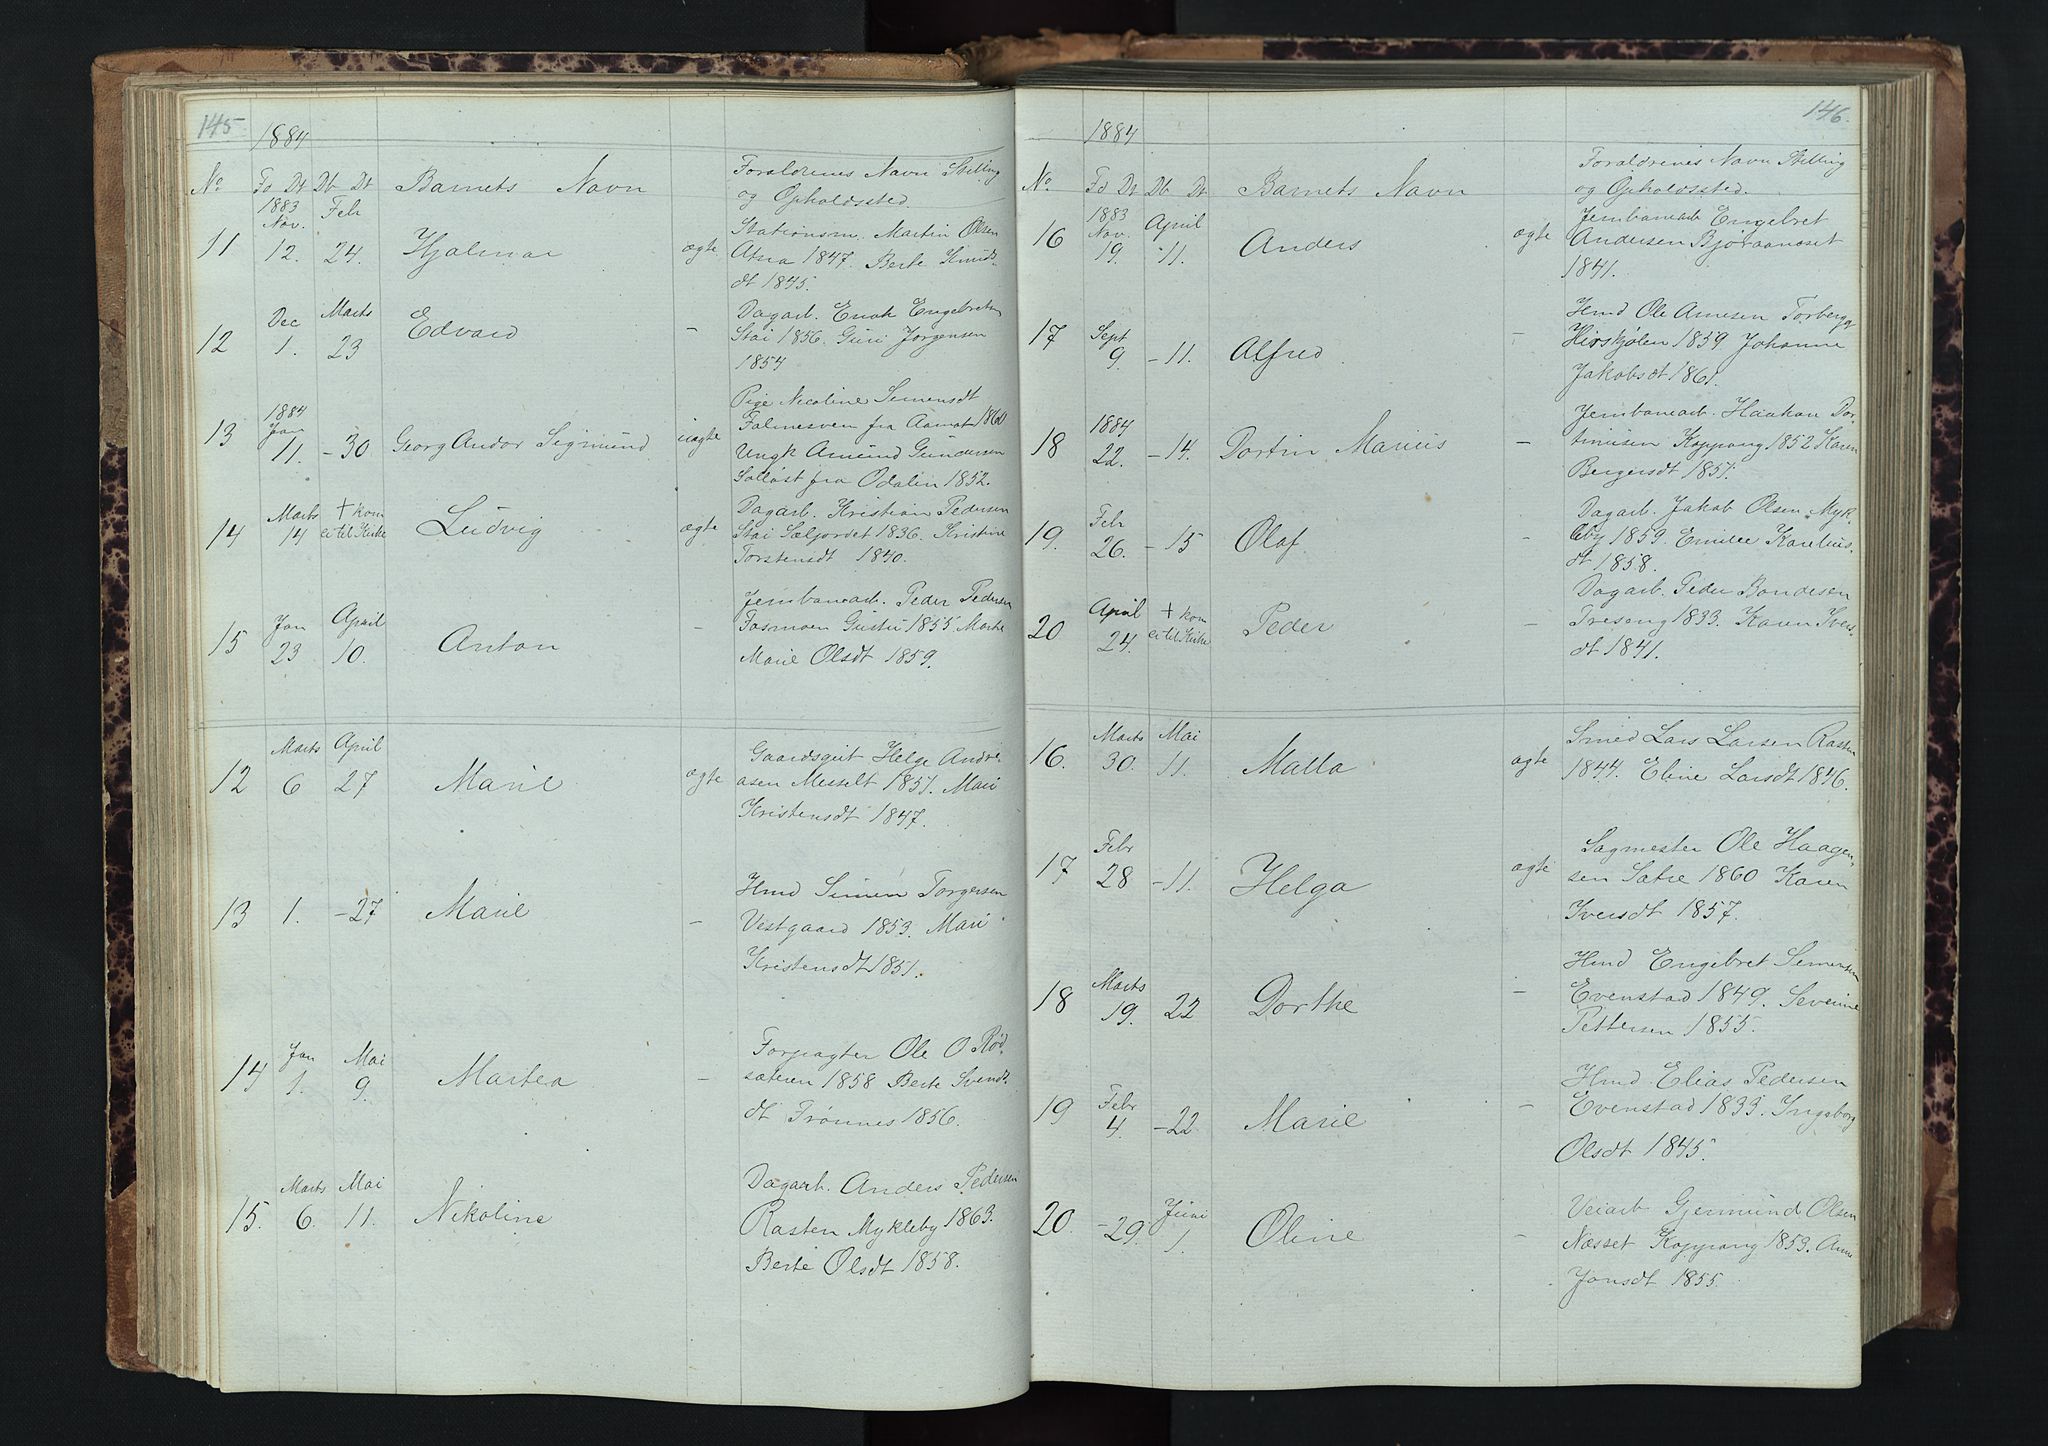 145
1884
No Fd Dt Db Dt Barnets Navn Foraldrenes Navn Stilling
og Opholdssted.
1883
Nov. Febr
11 12. 24. Hjalmar ægte Stationsm. Martin Olsen
Atna 1847. Berte Knuds
dt 1845.
Dec Marts
12 1. 23 Edvard – Dagarb. Erick Engebretsn
Stai 1856. Guri Jørgensen
1854
1884
Jan
13 11. – 30 Georg Andor Sigmund uægte Pige Nicoline Simensdt
fra Aamot 1860
Ungk Amund Gundersen
fra Odalen 1852.
Marts + kom
14 14 ei til Kirke Ludvig ægte Dagarb. Kristian Pedersen
Stai 1836. Kristine
Torstensdt 1840.
Jan April
15 23 10. Anton – Jernbanearb. Peder Pedersen
Fosmoen 1855. Marte
Marie Olsdt 1859.
Marts April
12 6 27 Marie ægte Gaardsgut Helge Andre-
asen Messelt 1851. Mari
Kristensdt 1847.
13 1. – 27 Marie – Hmd Simen Torgersen
Vestgaard 1853. Mari
Kristensdt 1851.
Jan Mai
14 1. 9. Martea – Forpagter Ole O Rød-
sæteren 1858 Berte Svends
dt Trønnes 1856.
Marts Mai
15. 6. 11. Nikoline Dagarb. Anders Pedersen
Rasten Mykleby 1863.
Berte Olsdt 1858.
146.
1884
No Fd Dt Db Dt Barnets Navn Foraldrenes Navn Stilling
og Opholdssted.
1883
Nov. April
16 19. 11. Anders ægte Jernbanearb Engebret
Andersen Bjøraaneset
1841.
Sept
17 9. – 11. Alfred – Hmd Ole Arnesen Torberg
Hirskjølen 1859 Johanne
Jakobsdt 1861.
1884
18 22. – 14. Dortin Marius – Jernbanearb. Haakon Dor-
tinusen Koppang 1852 Karen
Bergersdt 1857.
Febr
19. 26. – 15 Olaf – Dagarb. Jakob Olsen Myk-
leby 1859. Emilie Karelius-
dt 1858.
April + kom
20 24. ei til Kirke Peder – Dagarb. Peder Bondesen
Treseng 1833. Karen Ivers-
dt 1841.
Marts Mai
16. 30. 11. Malla ægte Smed Lars Larsen Rasten
1844. Eline Larsdt 1846.
Febr
17 28 – 11. Helga ægte Sagmester Ole Haagen-
sen Sætre 1860 Karen
Iversdt 1857.
Marts
18 19. 22 Dorthe – Hmd Engebret Sementsen
Evenstad 1849. Severine
Pettersen 1855.
Febr
19 4. – 22. Marie – Hmd Elias Pedersen
Evenstad 1833. Ingeborg
Olsdt 1845.
Juni
20. – 29. 1. Oline – Veiarb Gjermund Olsen
Næsset Koppang 1853. Anne
Jonsdt 1855.